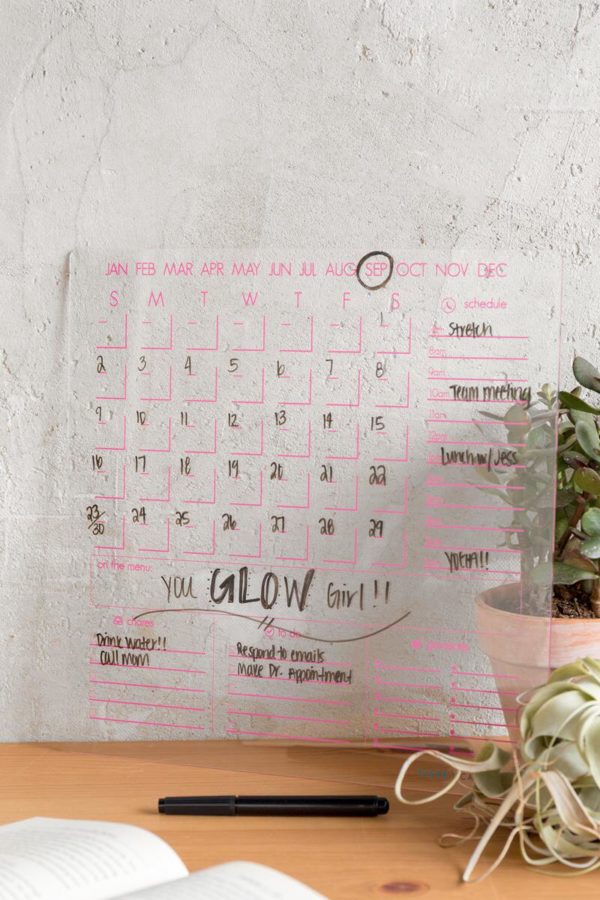 JAN FEB MAR APR MAY JUN JUL AUG SEP OCT NOV DEC
S M T W T F S
schedule
1
Stretch
8am
2 3 4 5 6 7 8
9am
10am Team meeting
11am
9 10 11 12 13 14 15
Lunch w/ Jess
16 17 18 19 20 21 22
23/30 24 25 26 27 28 29
on the menu:
YOU GLOW Girl!!
chores
to do
Drink water!!
Call MOM
Respond to emails
Make Dr. Appointment